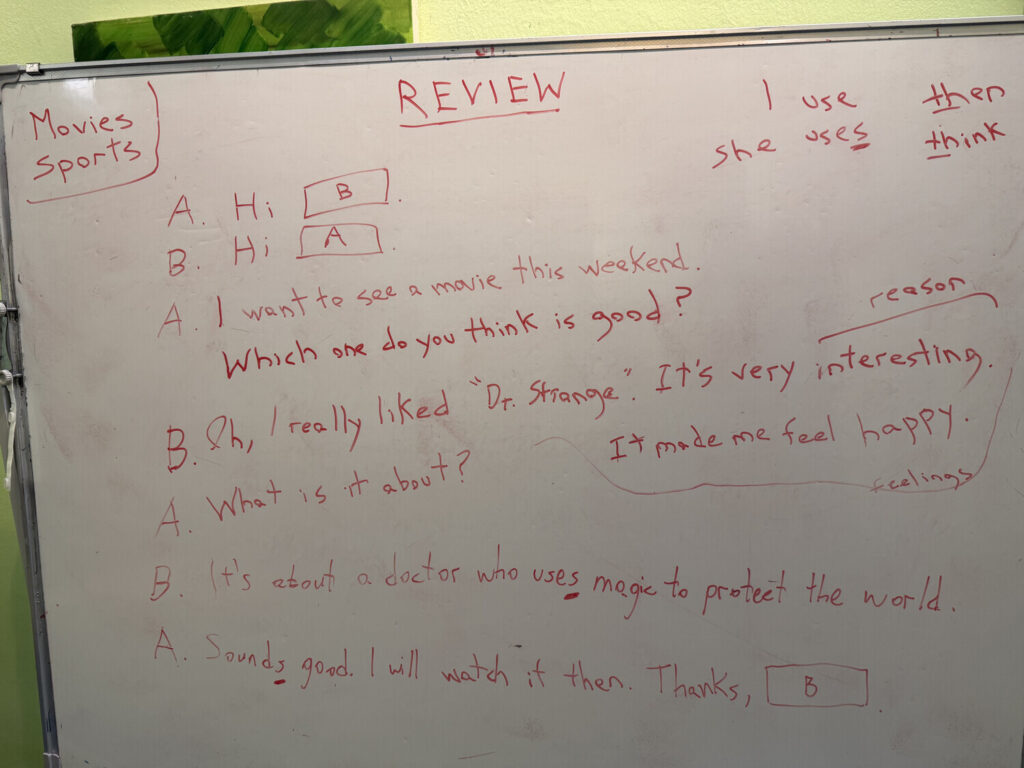 REVIEW
Movies
Sports
I use then
she uses think
A. Hi B.
B. Hi A.
A. I want to see a movie this weekend.
Which one do you think is good?
reason
B. Oh, I really liked "Dr. Strange". It's very interesting.
It made me feel happy.
feelings
A. What is it about?
B. It's about a doctor who uses magic to protect the world.
A. Sounds good. I will watch it then. Thanks, B.